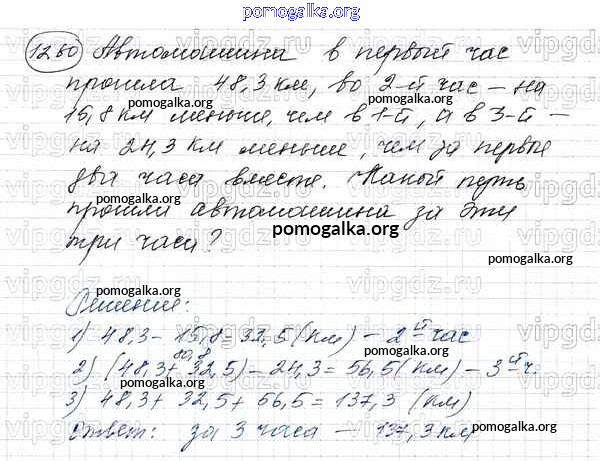 pomogalka.org
1260 Автомашина в первый час
прошла 48,3 км, во 2-й час – на
pomogalka.org pomogalka.org
15,8 км меньше, чем в 1-й, а в 3-й –
на 24,3 км меньше, чем за первые
pomogalka.org
два часа вместе. Какой путь
прошла автомашина за эти
три часа? pomogalka.org
pomogalka.org
Решение:
1) 48,3 - 15,8 = 32,5 (км) – 2й час
80,8
2) (48,3 + 32,5) - 24,3 = 56,5 (км) – 3й ч.
pomogalka.org
3) 48,3 + 32,5 + 56,5 = 137,3 (км)
Ответ: за 3 часа — 137,3 км
pomogalka.org pomogalka.org